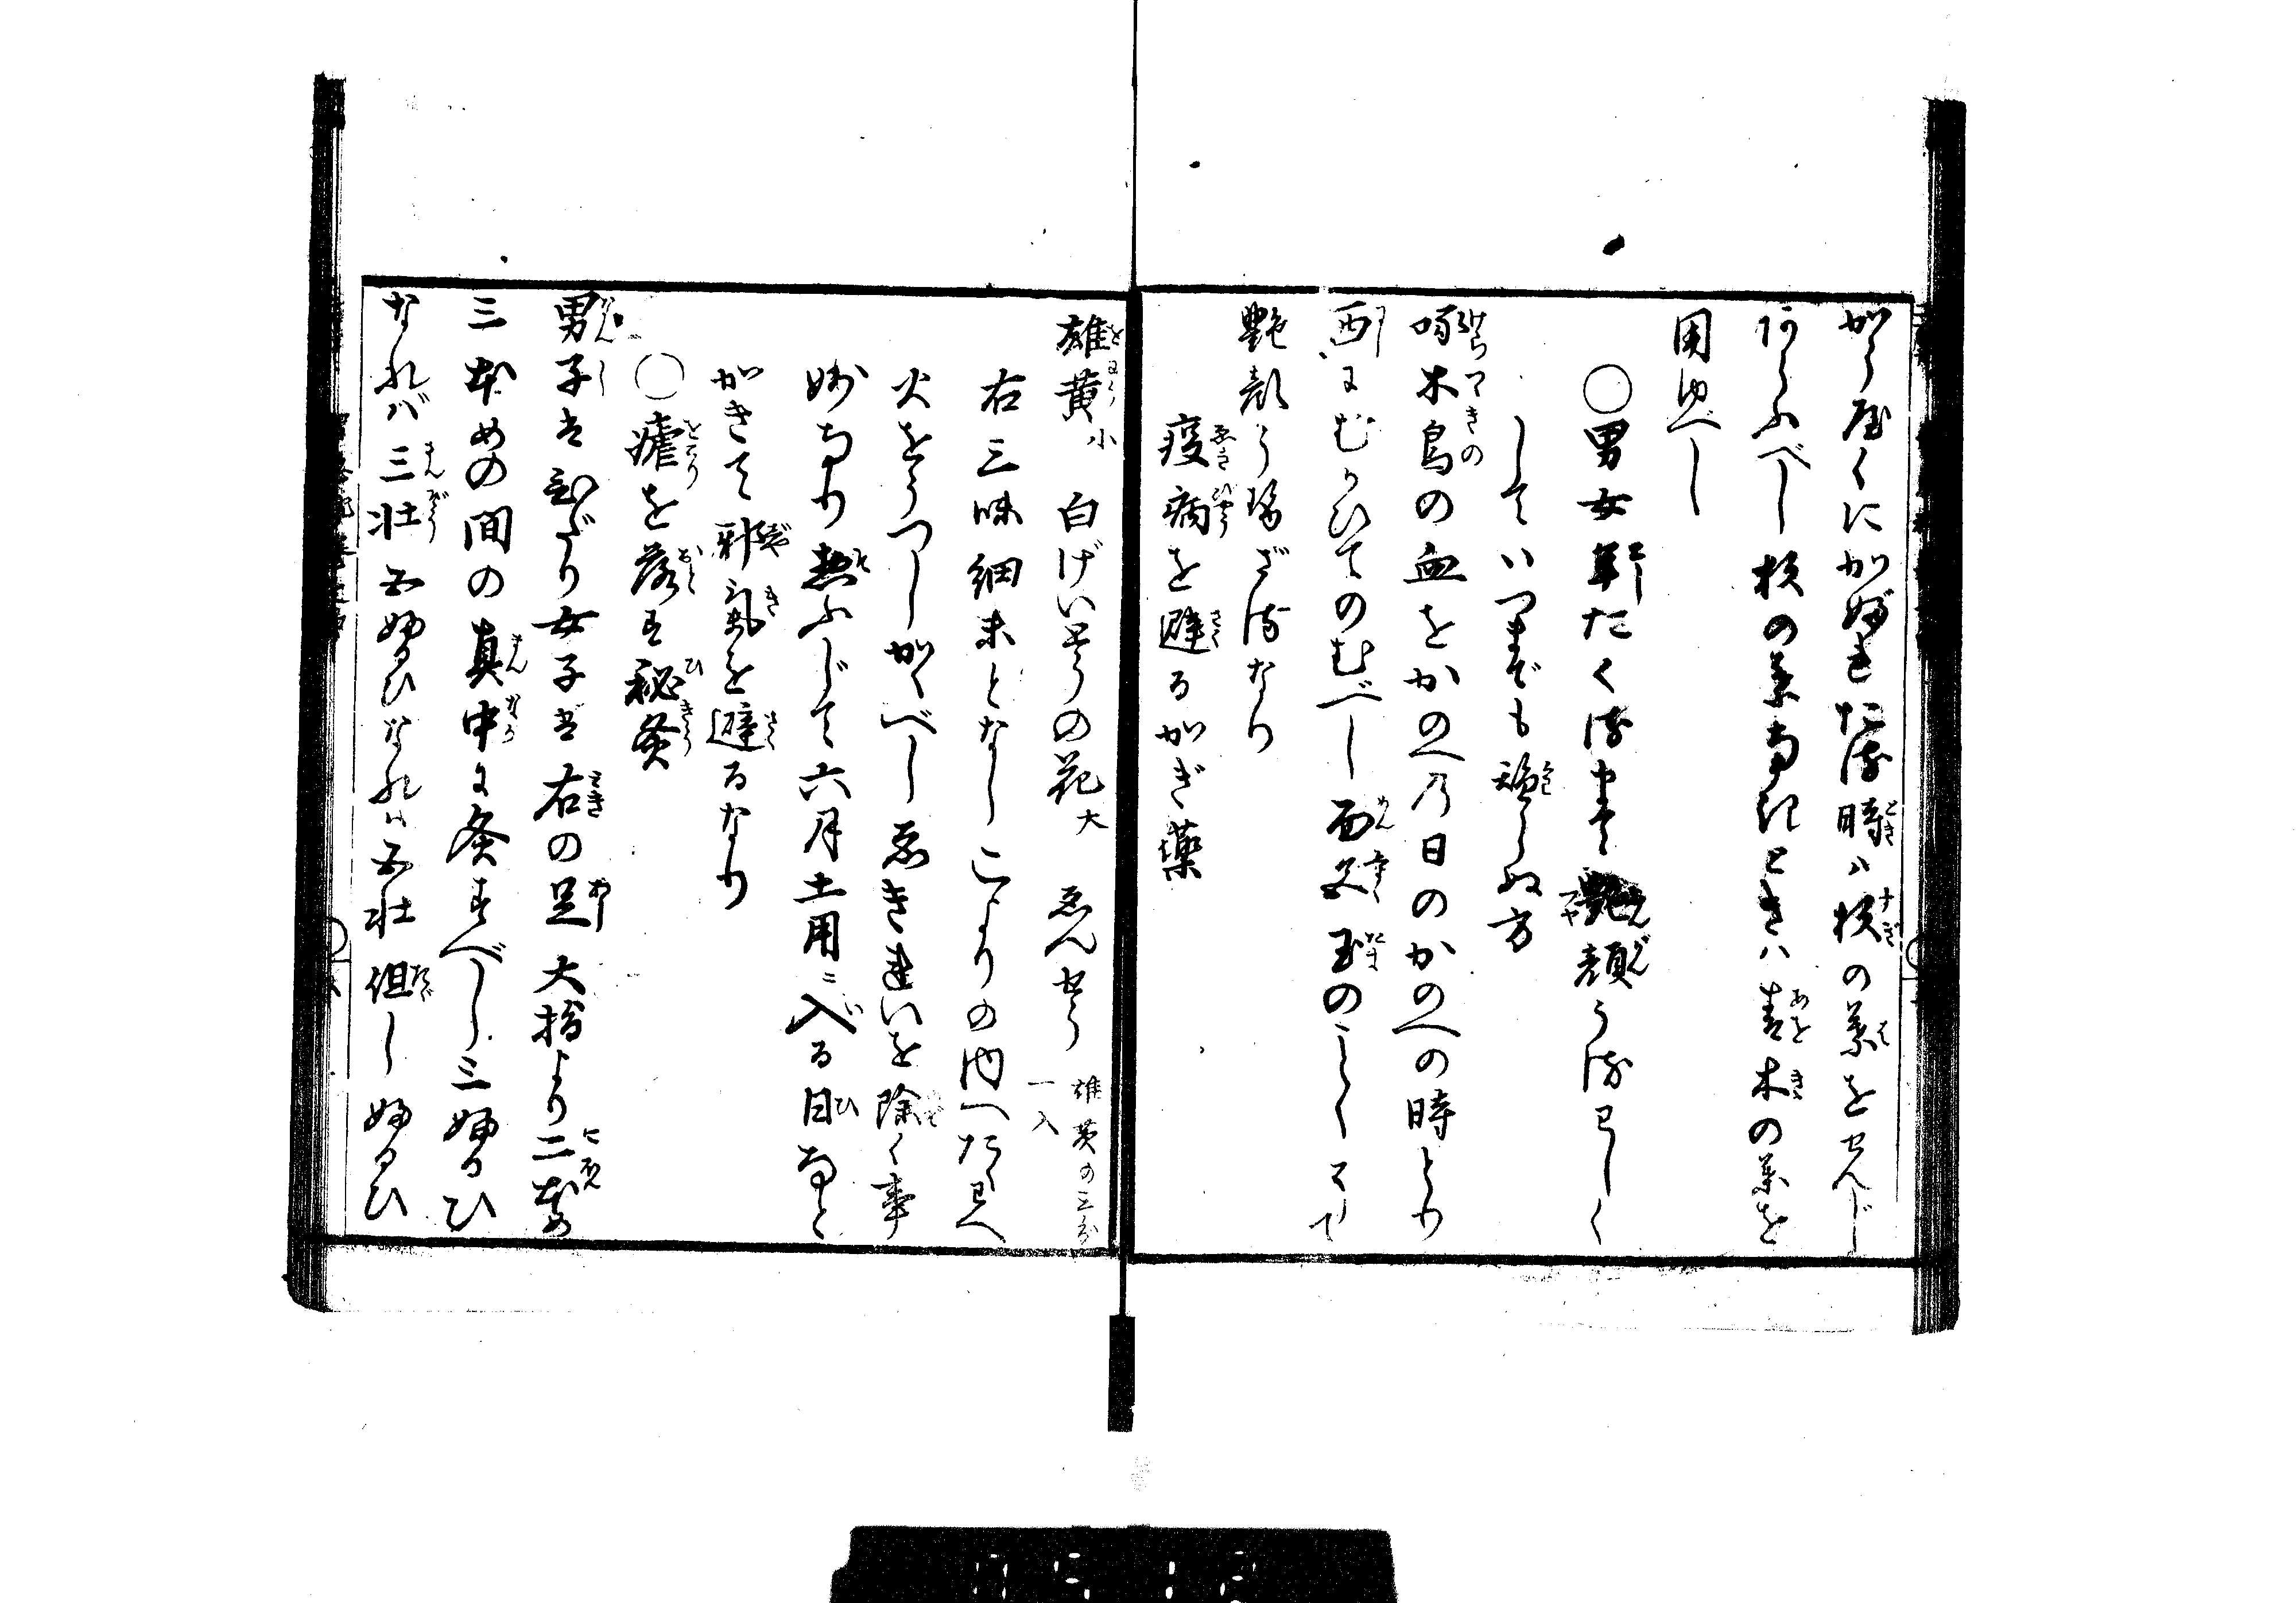 かうやくにかぶれたる時ハ杉の葉をせんじ
あらふべし杉の葉なきときハ青木の葉を
用ゆべし
〇男女年たくるまで艶顔うるわしく
していつまでも
方
啄木鳥の血をかのへの日のかのへの時とり
西にむかひてのむべし面色玉のごとくにして
艶顔うるざるなり
疫病を避るかぎ薬
雄黄小 白げいとうの花大 ゑんせう 雄黄の三分一入
右三味細末となしこよりの内へたくわへ
火をうつしかぐべし悪き匂いを除く事
妙なり惣ふじて六月土用ニ入る日など
かぎて邪気を避るなり
〇瘧を落す秘灸
男子はひだり女子は右の足大指より二本め
三本めの間の真中に灸すべし三ふるひ
なれバ三壮五ふるひなれハ五壮但しふるひ